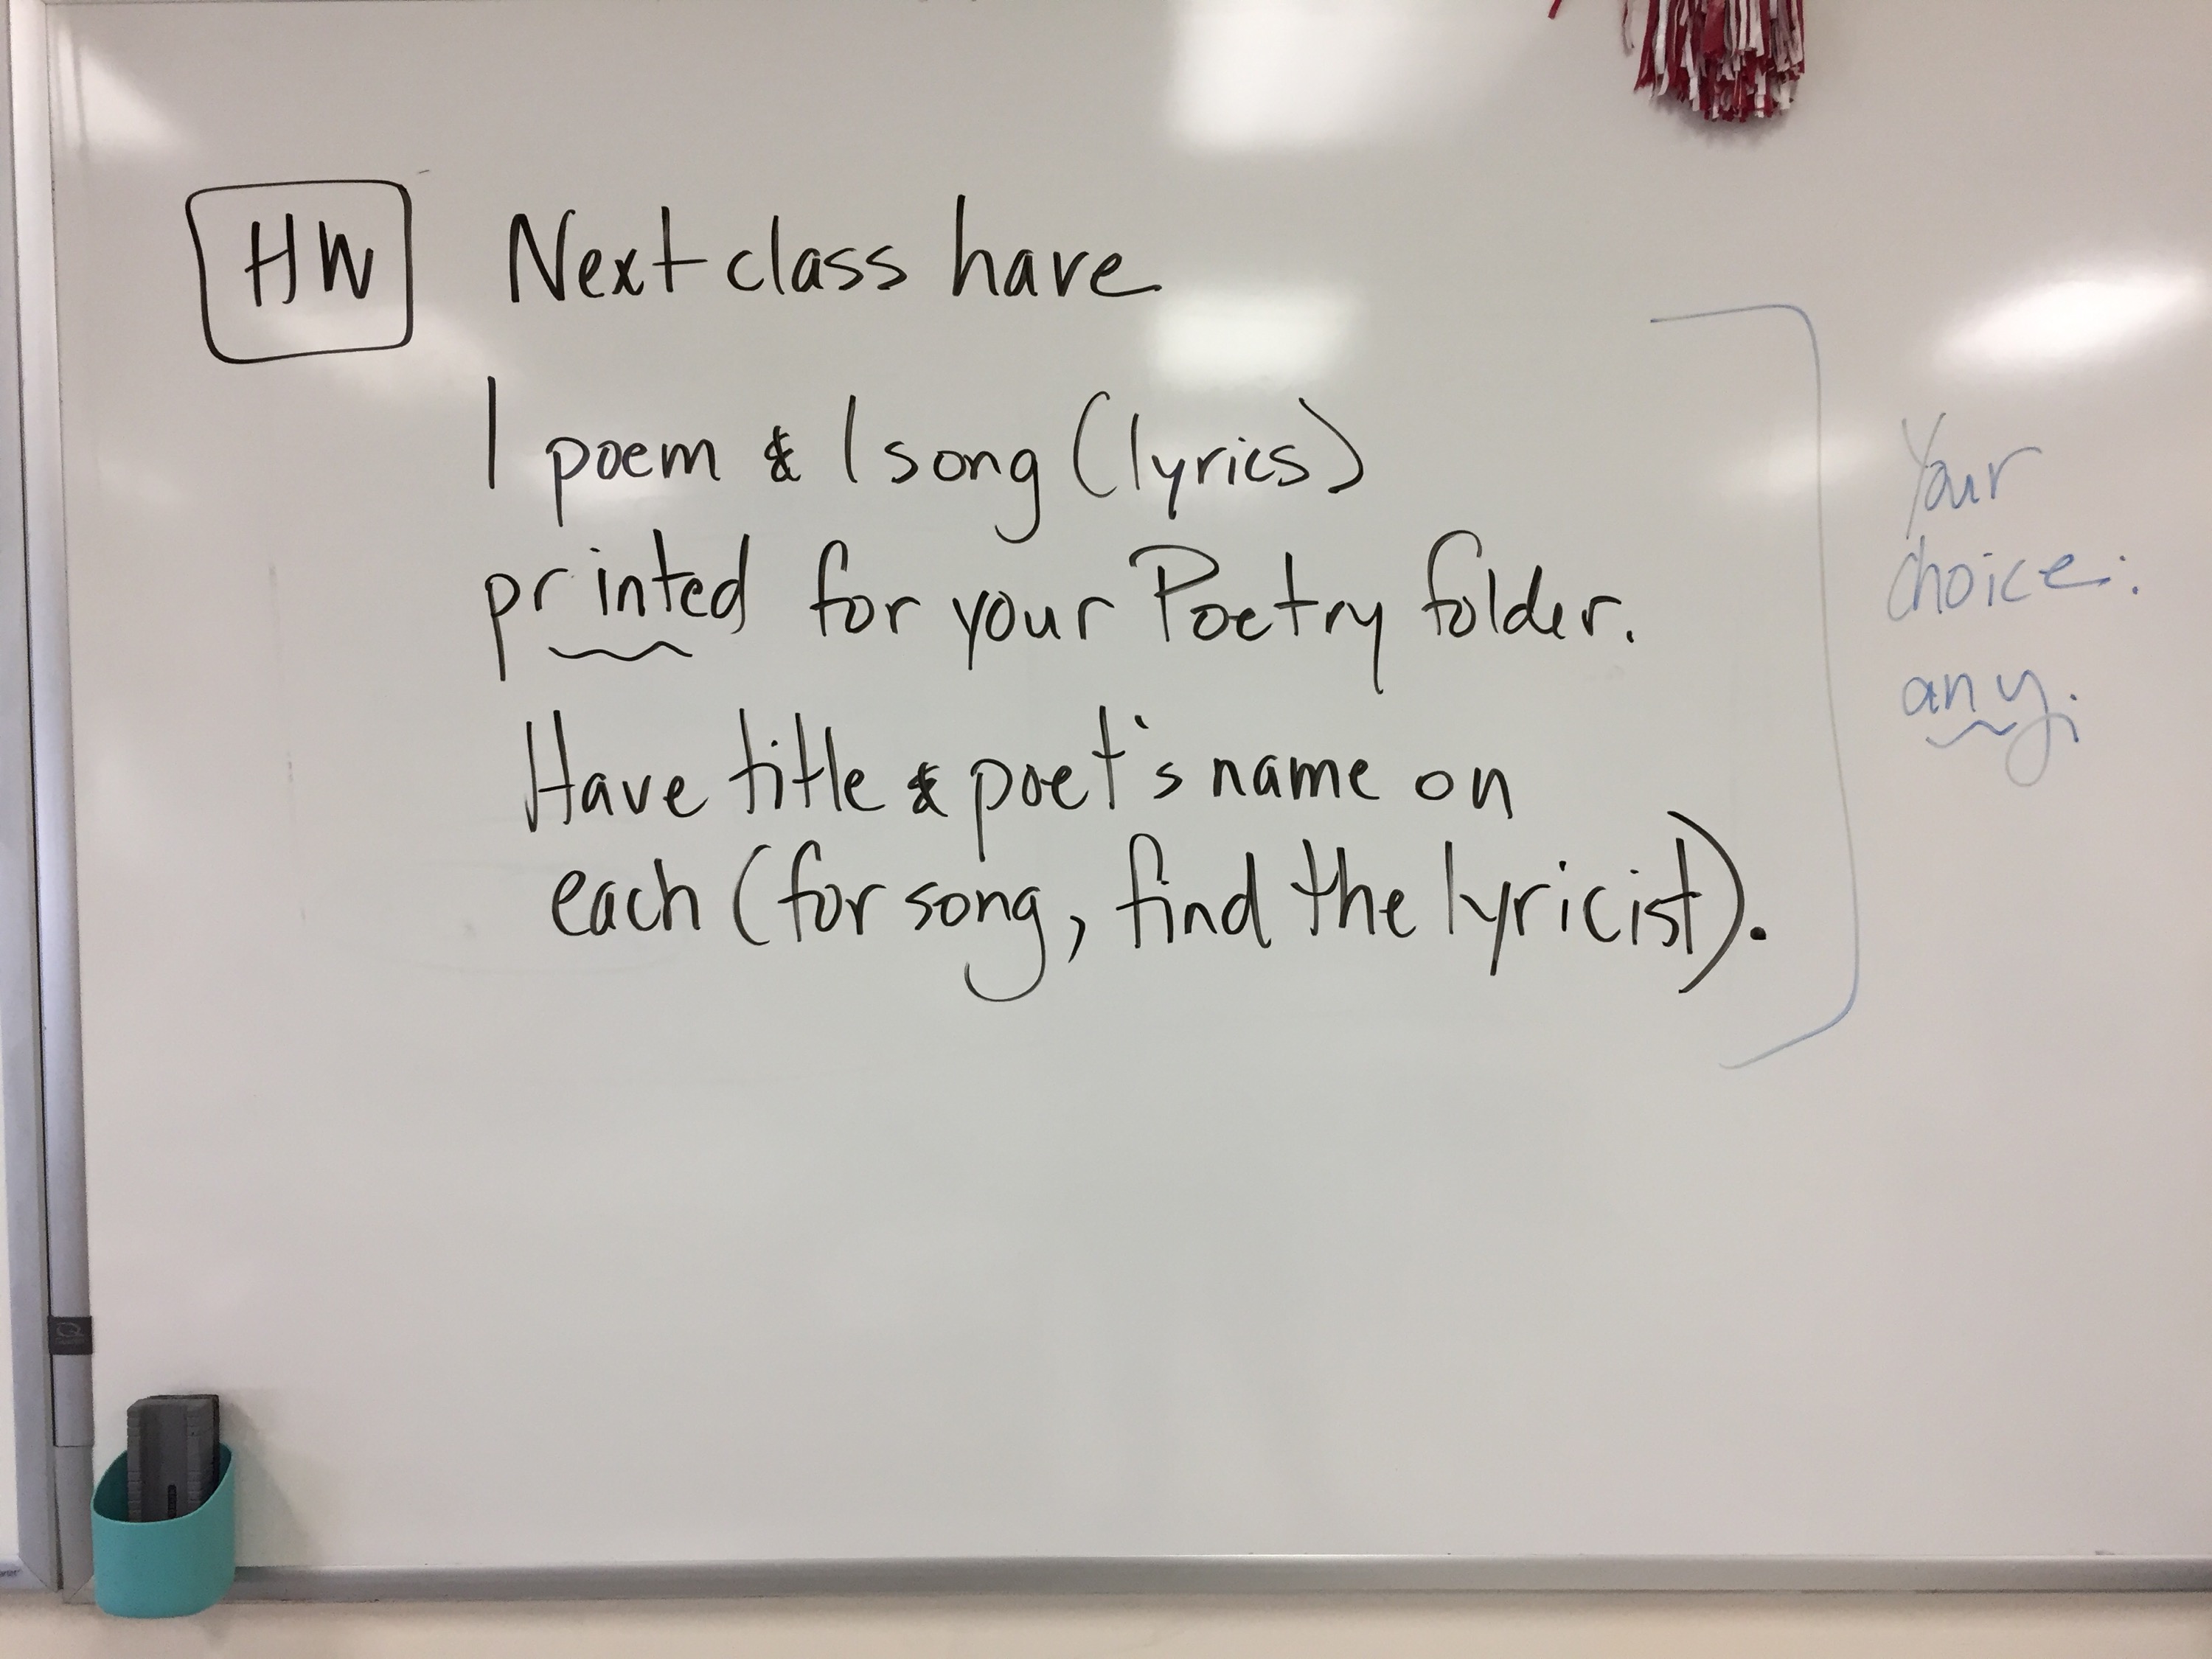 HW
Next class have
1 poem & 1 song (lyrics)
printed for your Poetry folder.
Have title & poet's name on
each (for song, find the lyricist).
Your
choice:
any.